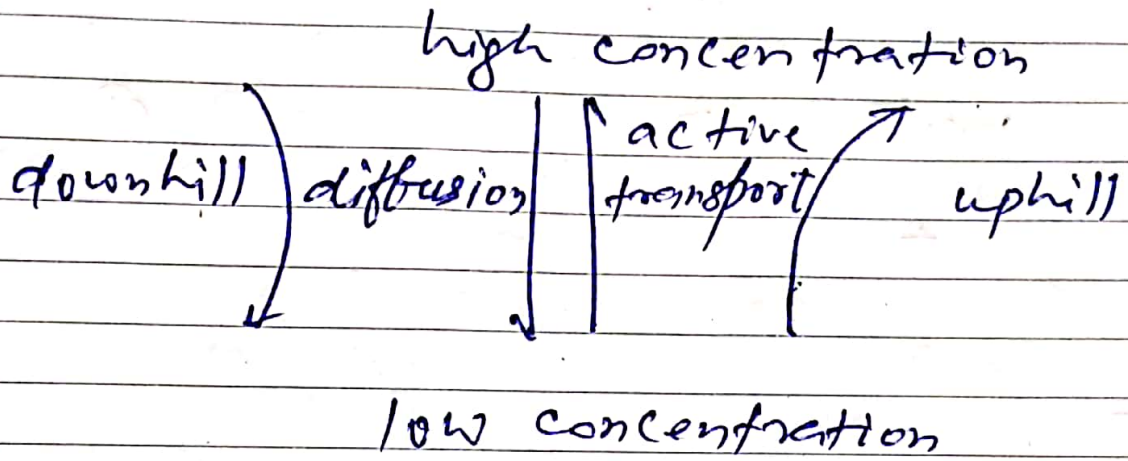 high concentration
active
downhill diffusion transport uphill
low concentration